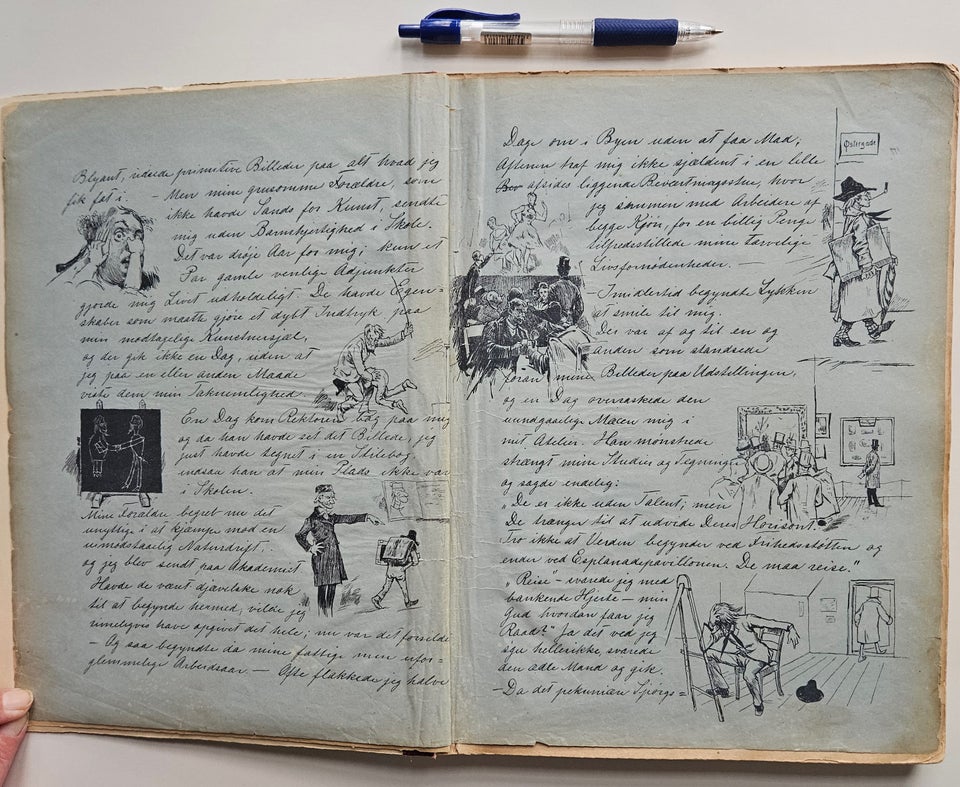 Blyant, udøse primitive Billeder paa alt hvad jeg
fik fat i. — Men mine grusomme Forældre, som
ikke havde Sands for Kunst, sendte
mig uden Barmhjertighed i Skole.
Det var drøje Aar for mig; kun et
Par gamle venlige Adjunkter
gjorde mig Livet udholdeligt. De havde Egen=
skaber som maatte gjøre et dybt Indtryk paa
min modtagelige Kunstnersjæl,
og der gik ikke en Dag, uden at
jeg paa en eller anden Maade
viste dem min Taknemlighed.
En Dag kom Rektoren bag paa mig
og da han havde set det Billede, jeg
just havde tegnet i en Stilebog,
indsaa han at min Plads ikke var
i Skolen.
Mine Forældre begreb nu det
unyttige i at kjæmpe mod en
uimodstaaelig Naturdrift,
og jeg blev sendt paa Akademiet
Havde de været djævelske nok
til at begynde hermed, vilde jeg
rimeligvis have opgivet det hele; nu var det forsilde
— Og saa begyndte da mine fattige men ufor=
glemmelige Arbeidsaar — Ofte flakkede jeg halve
Dage om i Byen uden at faa Mad;
Aftenen traf mig ikke sjældent i en lille
afsides liggende Beværtningsstue, hvor
jeg sammen med Arbeidere af
begge Kjøn, for en billig Penge
tilfredsstillede mine tarvelige
Livsfornødenheder. —
Østergade
— Imidlertid begyndte Lykken
at smile til mig.
Der var af og til en og
anden som standsede
foran mine Billeder paa Udstillingen,
og en Dag overraskede den
uundgaaelige Mæcen mig i
mit Atelier. Han mønstrede
strængt mine Studier og Tegninger
og sagde endelig:
"De er ikke uden Talent; men
De trænger til at udvide Deres Horisont.
Tro ikke at Verden begynder ved Frihedsstøtten og
ender ved Esplanadepavillonen. De maa reise."
"Reise" — svarede jeg med
bankende Hjerte — min
Gud hvordan faar jeg
Raad?" Ja det ved jeg
sgu hellerikke, svarede
den ædle Mand og gik.
— Da det pekuniære Spörgs=